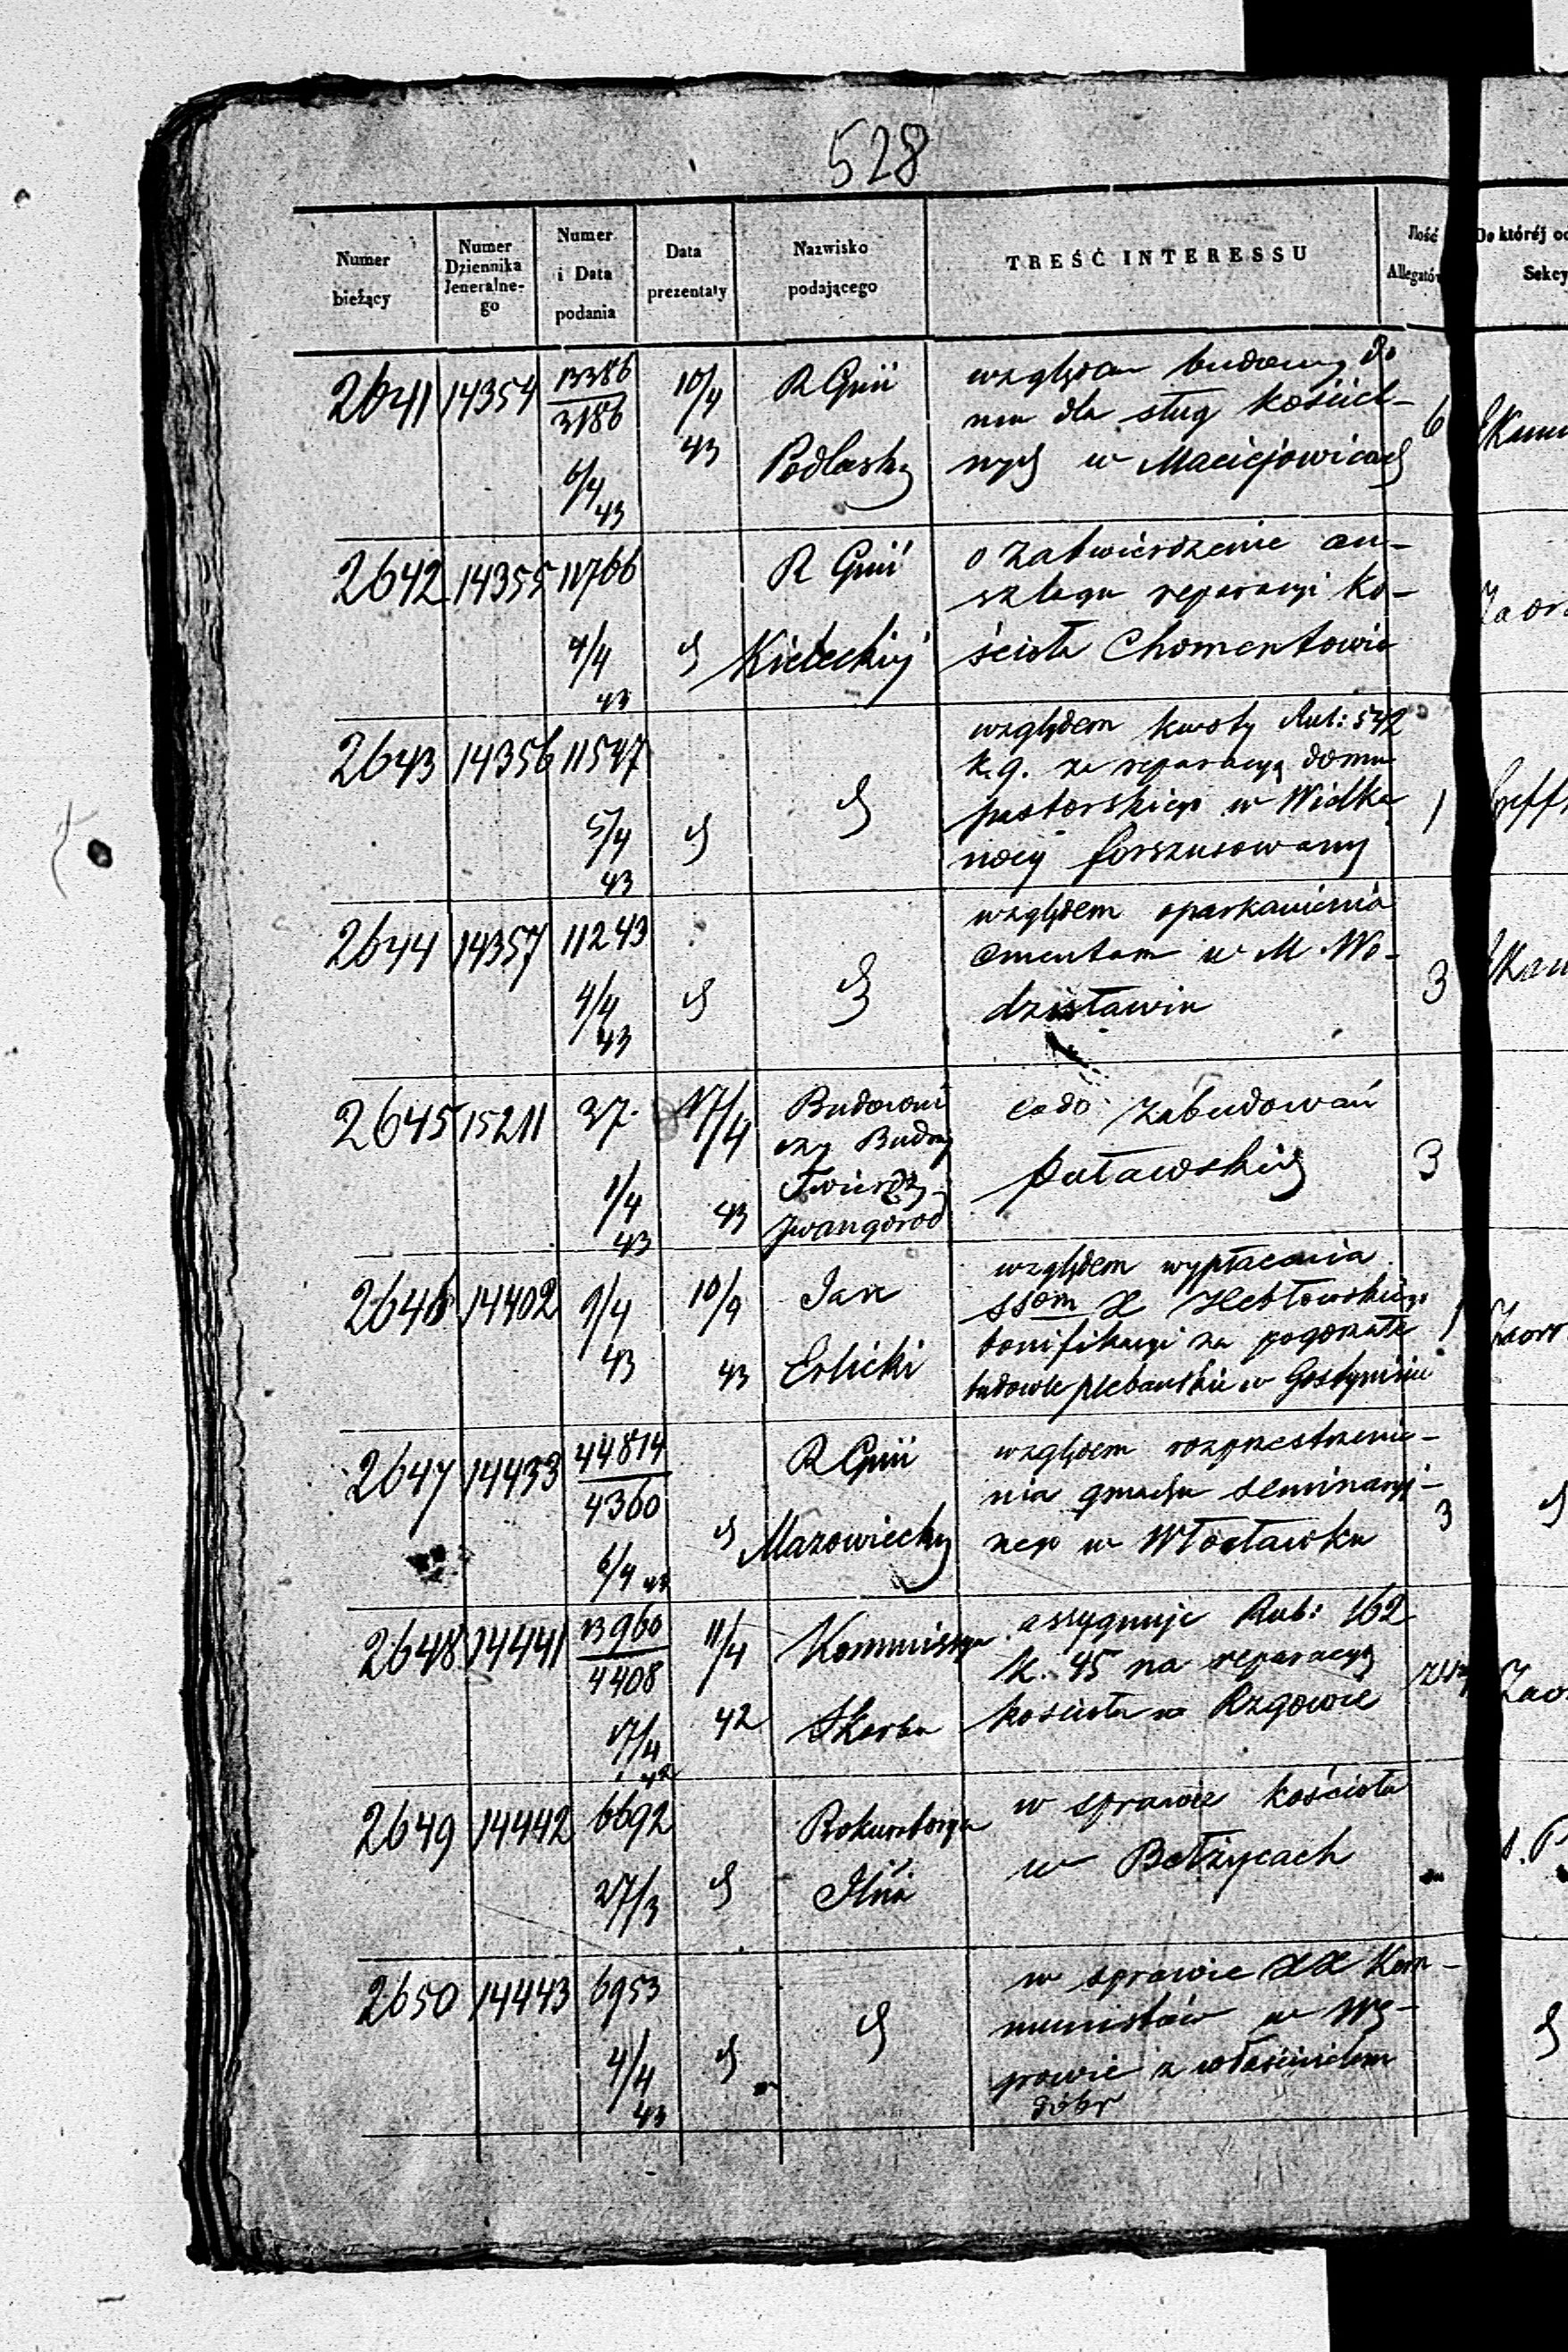 528
Numer bieżący | Numer Dziennika Jeneralne- go | Numer i Data podania | Data prezentaty | Nazwisko podającego | TREŚĆ INTERESSU | Ilość Allegatów | Do której od Sekcy
2641 | 14354 | 13386 / 3186 6/4 43 | 10/4 43 | R Gnii Podlaski | względem budowy do | 6
mu dla sług kościel-
nych w Maciejowicach
2642 | 14355 | 11766 4/4 43 | d | R Gnii Kieleckiej | o zatwierdzenie an-
szlagu reparacyi ko-
ścioła Chomentowie
2643 | 14356 | 11547 5/4 43 | d | d | względem kwoty Rub: 542 | 1
k. 9. za reparacyą domu
pastorskiego w Wielka
nocy forszusowany
2644 | 14357 | 11243 4/4 43 | d | d | względem oparkanienia | 3
cmentarza w M Wo-
dzisławiu
2645 | 15211 | 37. 1/4 43 | 17/4 43 | Budowni | co do zabudowań | 3
czy Budowy | puławskich
Twierdzy
Iwangorod
2646 | 14402 | 9/4 43 | 10/4 43 | Jan Erlicki | względem wypłacenia | 1
ssom X
bonifikacyi za pogorzałe
budowle plebańskie w Gostyninie
2647 | 14433 | 44814 / 4360 6/4 43 | d | R Gnii Mazowiecki | względem rozprzestrzenie- | 3 | d
nia gmachu seminaryj-
nego w Włocławku
2648 | 14441 | 13960 / 4408 17/4 42 | 11/4 42 | Kommissya Skarbu | assygnuje Rub: 162
k. 45 na reparacyą
kościoła w Rzgowie
2649 | 14442 | 6692 27/3 | d | Prokuratorya | w sprawie kościoła
w Bełżycach
2650 | 14443 | 6953 4/4 43 | d | d | w sprawie XX Kom- | d
munistów w Wę-
growie z właścicielem
dóbr